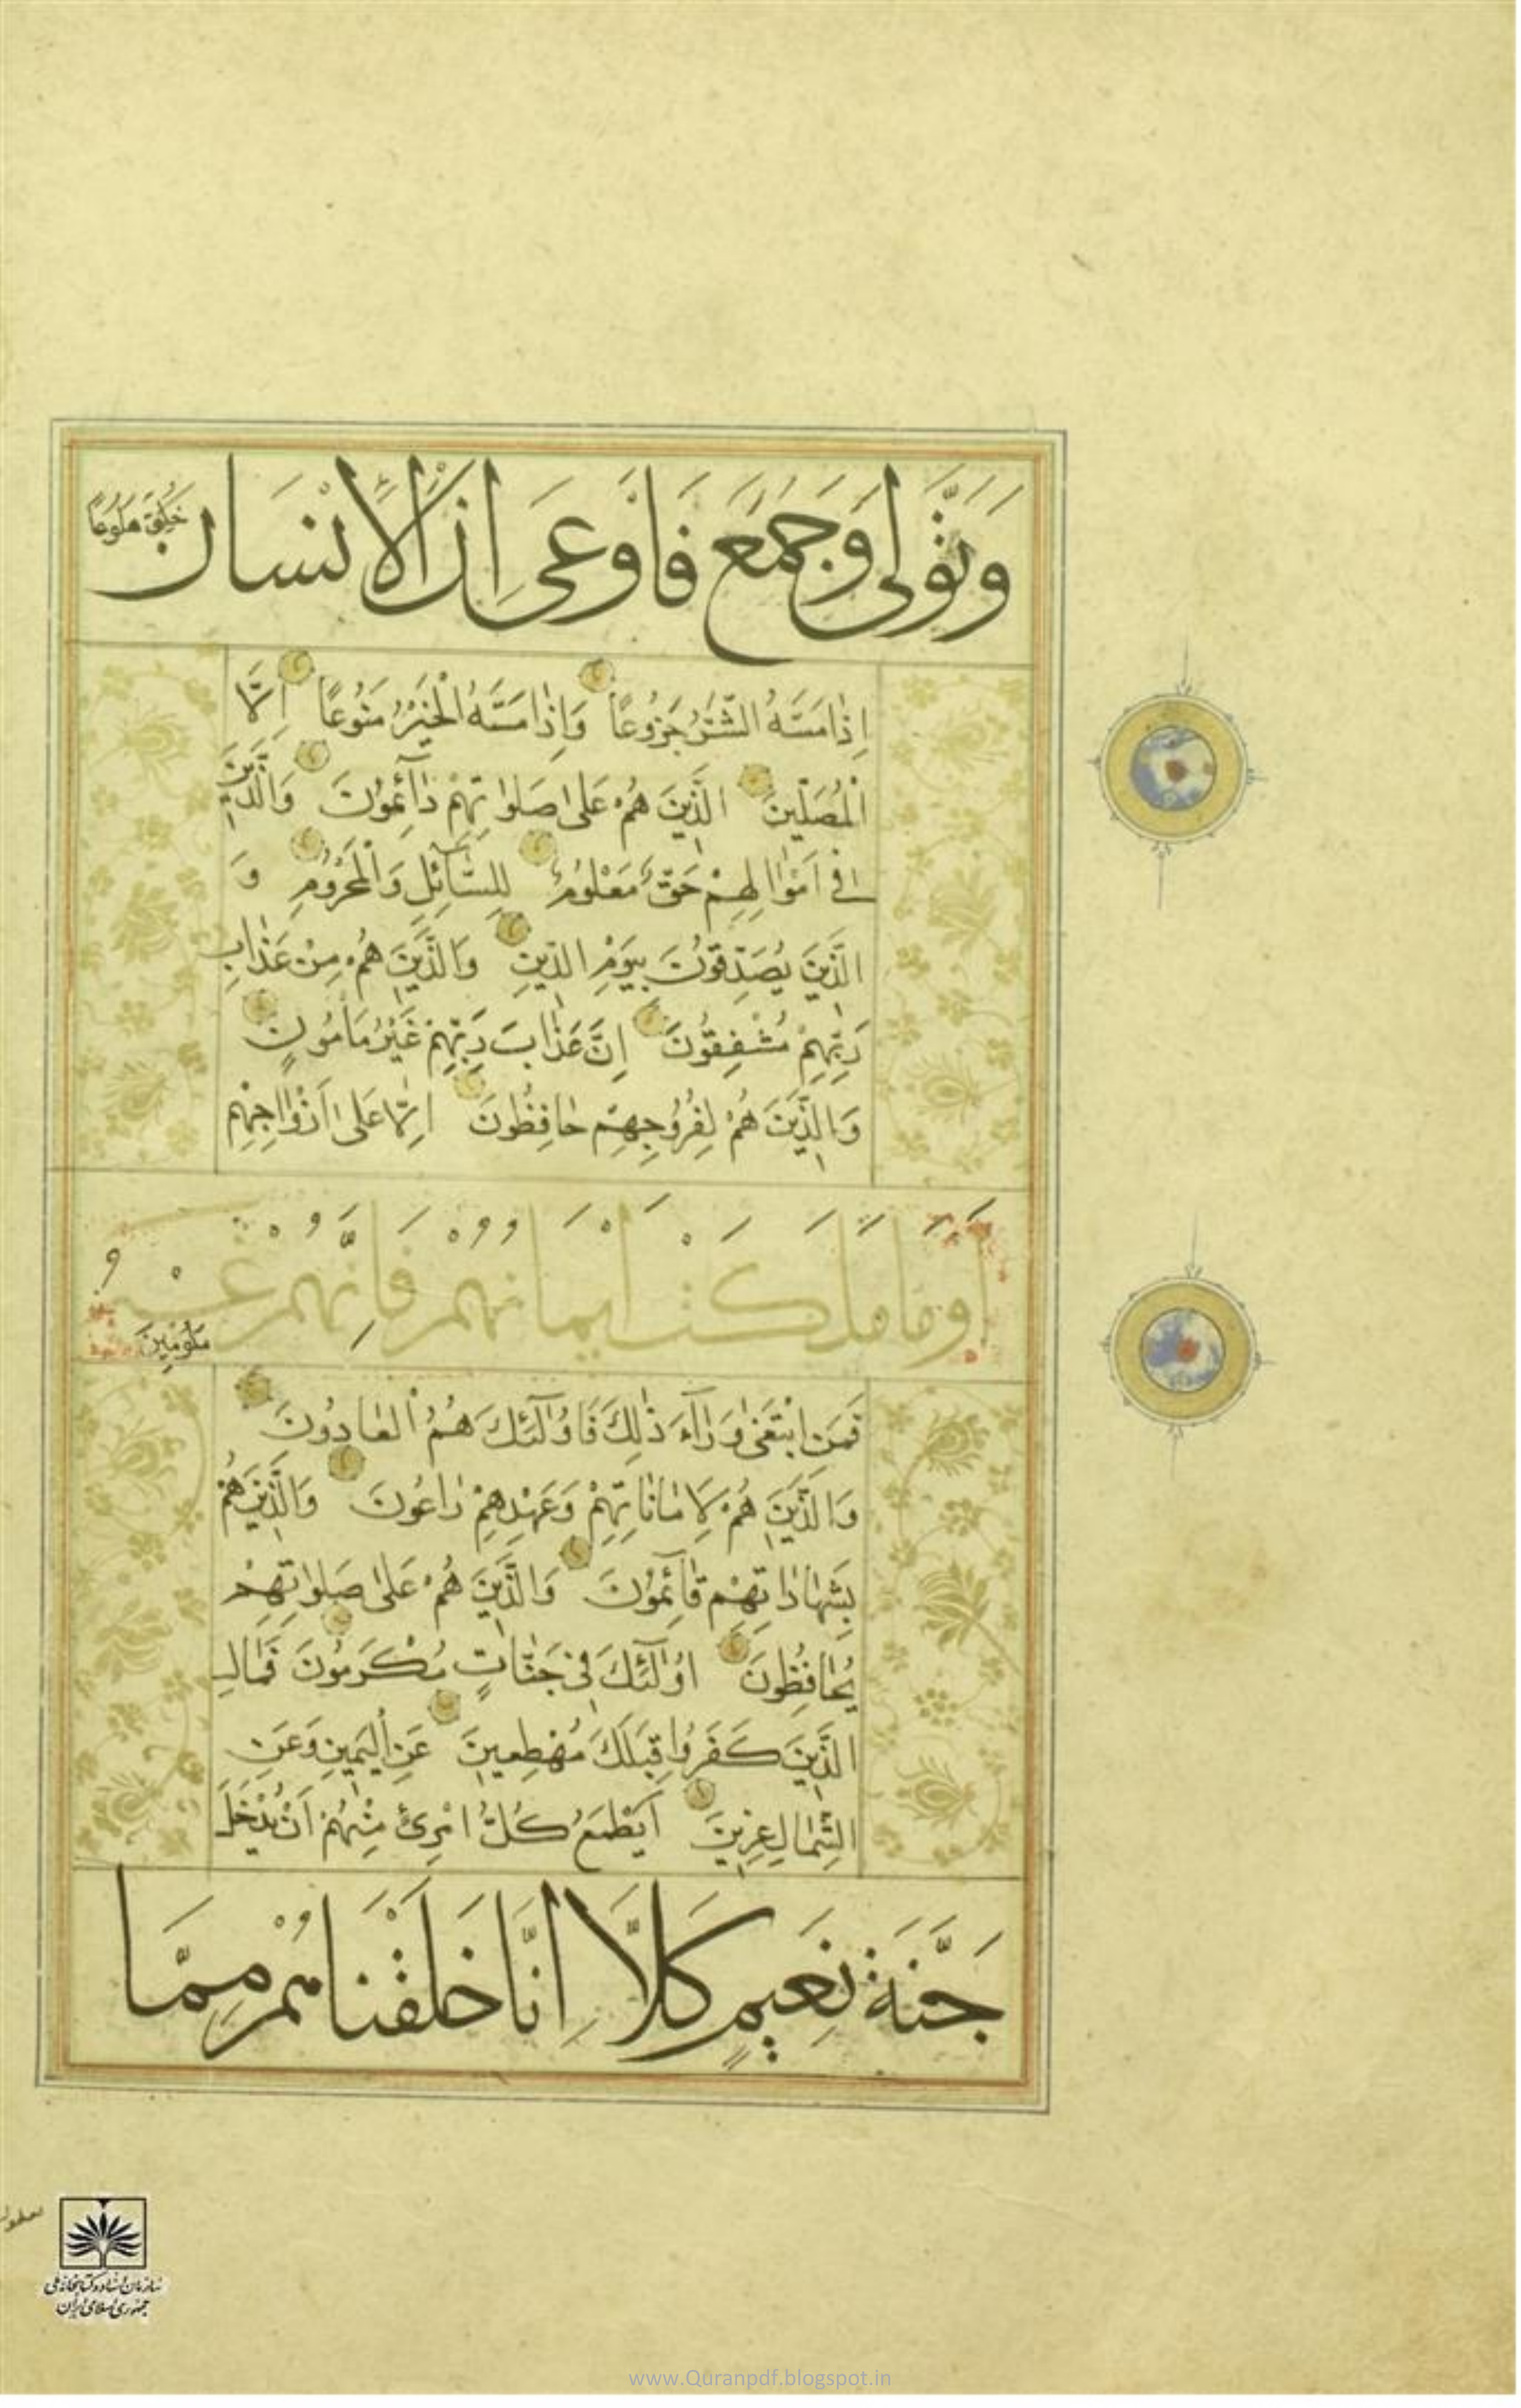 وَتَوَلّٰى وَجَمَعَ فَاَوْعٰى اِنَّ الْاِنْسَانَ خُلِقَ هَلُوعًا
اِذَا مَسَّهُ الشَّرُّ جَزُوعًا وَاِذَا مَسَّهُ الْخَيْرُ مَنُوعًا اِلَّا
الْمُصَلّينَ الَّذينَ هُمْ عَلٰى صَلٰوا تِهِمْ دٰآئِمُونَ وَالَّذينَ
فى اَمْوٰالِهِمْ حَقٌّ مَعْلُومٌ لِلسّٰآئِلِ وَالْمَحْرُومِ وَ
الَّذينَ يُصَدِّقُونَ بِيَوْمِ الدّينِ وَالَّذينَ هُمْ مِنْ عَذٰابِ
رَبِّهِمْ مُشْفِقُونَ اِنَّ عَذٰابَ رَبِّهِمْ غَيْرُ مَاْمُونٍ
وَالَّذينَ هُمْ لِفُرُوجِهِمْ حٰافِظُونَ اِلّٰا عَلٰى اَزْوٰاجِهِمْ
اَوْ مَا مَلَكَتْ اَيْمَانُهُمْ فَاِنَّهُمْ غَيْرُ مَلُومينَ
فَمَنِ ابْتَغٰى وَرٰآءَ ذٰلِكَ فَاُولٰٓئِكَ هُمُ الْعٰادُونَ
وَالَّذينَ هُمْ لِاَمٰانٰاتِهِمْ وَعَهْدِهِمْ رٰاعُونَ وَالَّذينَ هُمْ
بِشَهٰادٰاتِهِمْ قٰآئِمُونَ وَالَّذينَ هُمْ عَلٰى صَلٰواتِهِمْ
يُحٰافِظُونَ اُولٰٓئِكَ فى جَنّٰاتٍ مُكْرَمُونَ فَمٰالِ
الَّذينَ كَفَرُوا قِبَلَكَ مُهْطِعينَ عَنِ الْيَمينِ وَعَنِ
الشِّمٰالِ عِزينَ اَيَطْمَعُ كُلُّ امْرِئٍ مِنْهُمْ اَنْ يُدْخَلَ
جَنَّةَ نَعيمٍ كَلَّا اِنَّا خَلَقْنَاهُمْ مِمَّا
سازمان اسناد و کتابخانه ملی
جمهوری اسلامی ایران
www.Quranpdf.blogspot.in